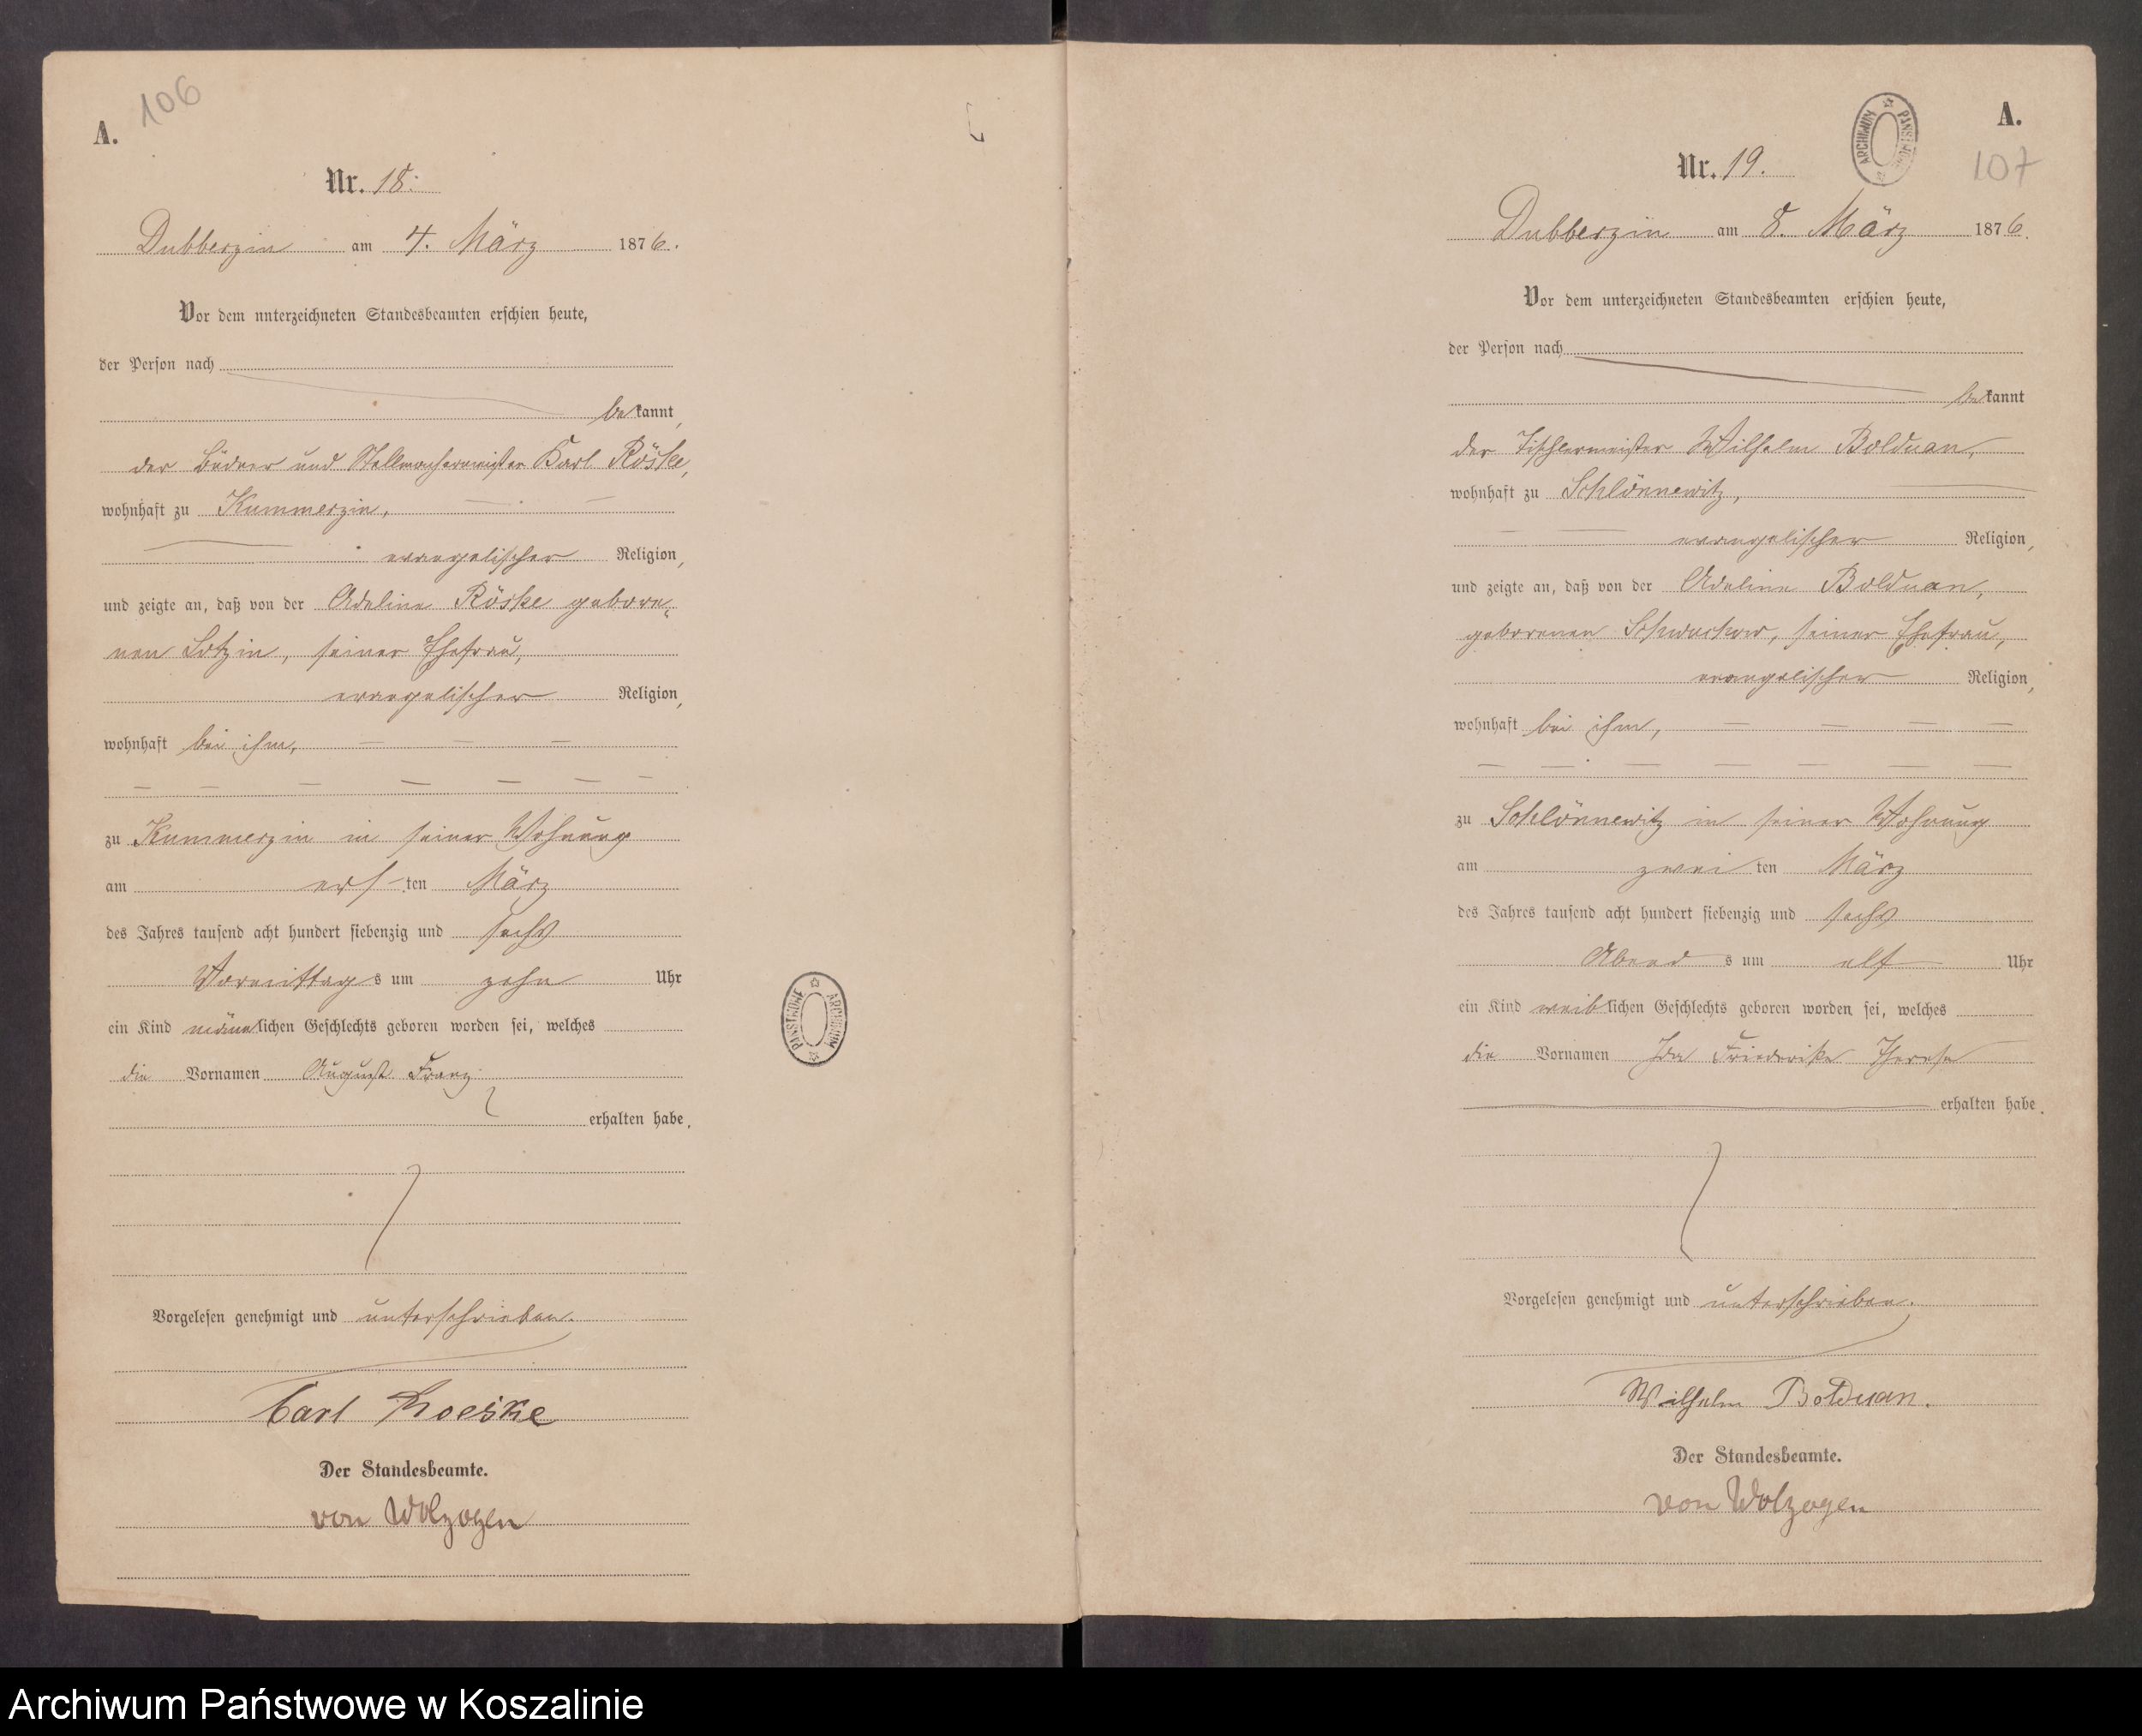 106
A.
Nr. 18.
Dubberzin am 4. März 1876.
Vor dem unterzeichneten Standesbeamten erschien heute,
der Person nach
bekannt,
der Büdner und Stellmachermeister Karl Röske,
wohnhaft zu Kummerzin,
evangelischer Religion,
und zeigte an, daß von der Adeline Röske gebore-
nen Lotzin, seiner Ehefrau,
evangelischer Religion,
wohnhaft bei ihm,
zu Kummerzin in seiner Wohnung
am ersten März
des Jahres tausend acht hundert siebenzig und sechs
Vormittags um zehn Uhr
ein Kind männlichen Geschlechts geboren worden sei, welches
die Vornamen August Franz
erhalten habe.
Vorgelesen genehmigt und unterschrieben.
Carl Roeske
Der Standesbeamte.
von Wolzogen
PANSTWOWE ARCHIWUM
A.
107
ARCHIWUM PANSTWOWE
Nr. 19.
Dubberzin am 8. März 1876.
Vor dem unterzeichneten Standesbeamten erschien heute,
der Person nach
bekannt
der Tischlermeister Wilhelm Bolduan,
wohnhaft zu Schlönnewitz,
evangelischer Religion,
und zeigte an, daß von der Adeline Bolduan,
geborenen Schwuchow, seiner Ehefrau,
evangelischer Religion,
wohnhaft bei ihm,
zu Schlönnewitz in seiner Wohnung
am zweiten März
des Jahres tausend acht hundert siebenzig und sechs
Abends um elf Uhr
ein Kind weiblichen Geschlechts geboren worden sei, welches
die Vornamen Ida Friederike Therese
erhalten habe.
Vorgelesen genehmigt und unterschrieben.
Wilhelm Bolduan.
Der Standesbeamte.
von Wolzogen
Archiwum Państwowe w Koszalinie